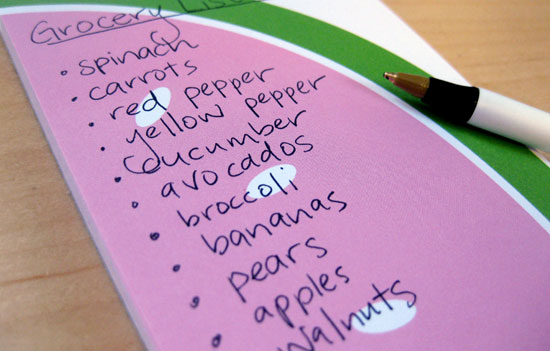 Grocery List
• spinach
• carrots
• red pepper
• yellow pepper
• cucumber
• avocados
• broccoli
• bananas
• pears
• apples
• walnuts